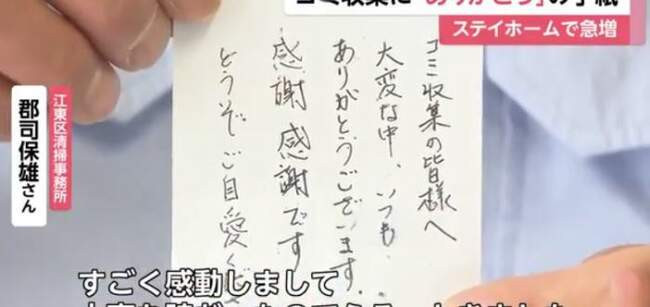 ステイホームで急増
ゴミ収集の皆様へ
大変な中、いつも
ありがとうございます。
感謝感謝です
どうぞご自愛くだ
江東区清掃事務所
郡司保雄さん
すごく感動しまして